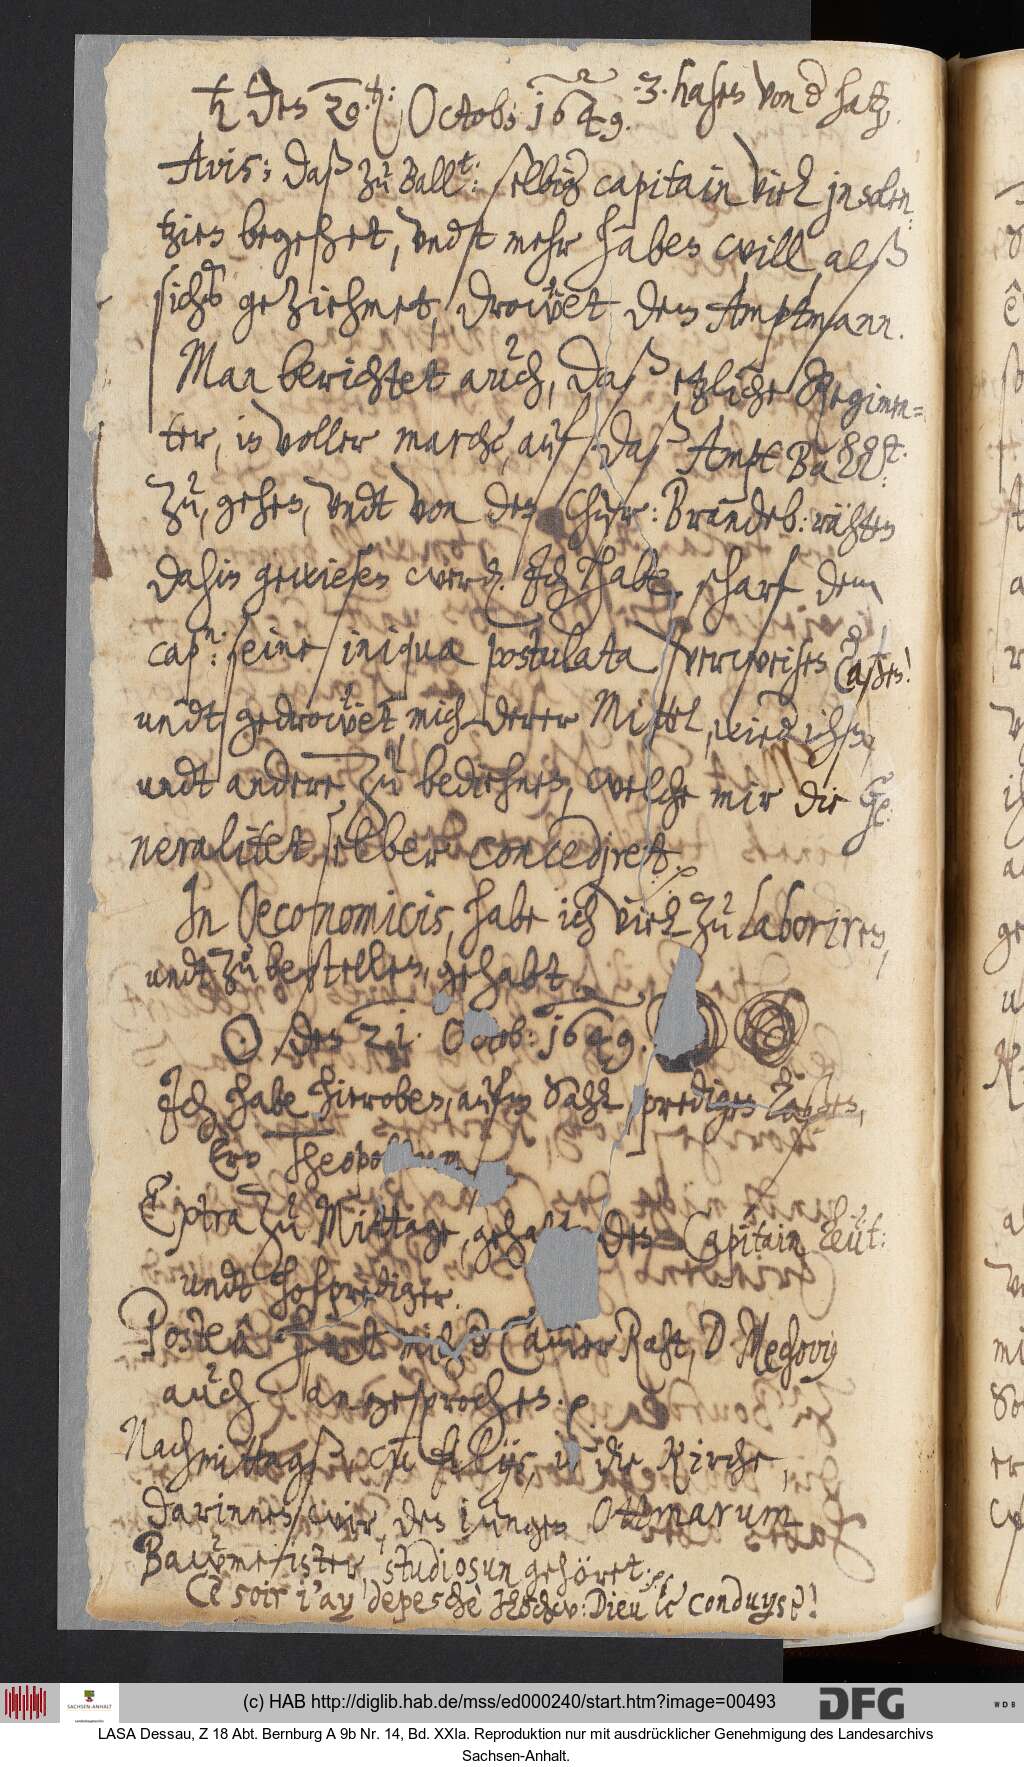 ♄ den 20.ten: Octob: 1649. .3. hasen von d hatz,
Avis: daß zu Ball.t: selbig capitain viel jnsolen¬
tzien begehret, vndt mehr haben will, alß
sichs geziehmet, drowet dem Amptmann.
Man berichtet auch, daß etzliche Regimen=
ter, in voller marche, auf daß Ampt Ball.t:
zu, gehen, vndt von den Chur: Brandeb: rähten
dahin gewiesen werden. Ich habe, scharf dem
cap.n: seine iniqua postulata verweisen laßen!
undt gedrowet, mich derer Mittel, wieder ihn,
undt andere zu bedienen, welche mir die Ge¬
neralitet selber concediret. p
In Oeconomicis, habe ich viel zu laboriren,
undt zu bestellen, gehabt.
☉ den 21. Octob: 1649.
Ich habe hieroben, aufm Sahl predigen laßen,
Ern Theopo
Extra zu Mittage, geha den Capitain Leüt:
undt hofprediger.
Postea mich d Camer Raht, D Mechovius
auch angesprochen. p
Nachmittagß cum filijs, in die Kirche,
darinnen wir, den iungen Ottmarum
Bawmeister, studiosum gehöret. p
Ce soir i'ay depesché : Dieu le conduyse!
(c) HAB http://diglib.hab.de/mss/ed000240/start.htm?image=00493
SACHSEN-ANHALT
DFG
WDB
LASA Dessau, Z 18 Abt. Bernburg A 9b Nr. 14, Bd. XXIa. Reproduktion nur mit ausdrücklicher Genehmigung des Landesarchivs
Sachsen-Anhalt.